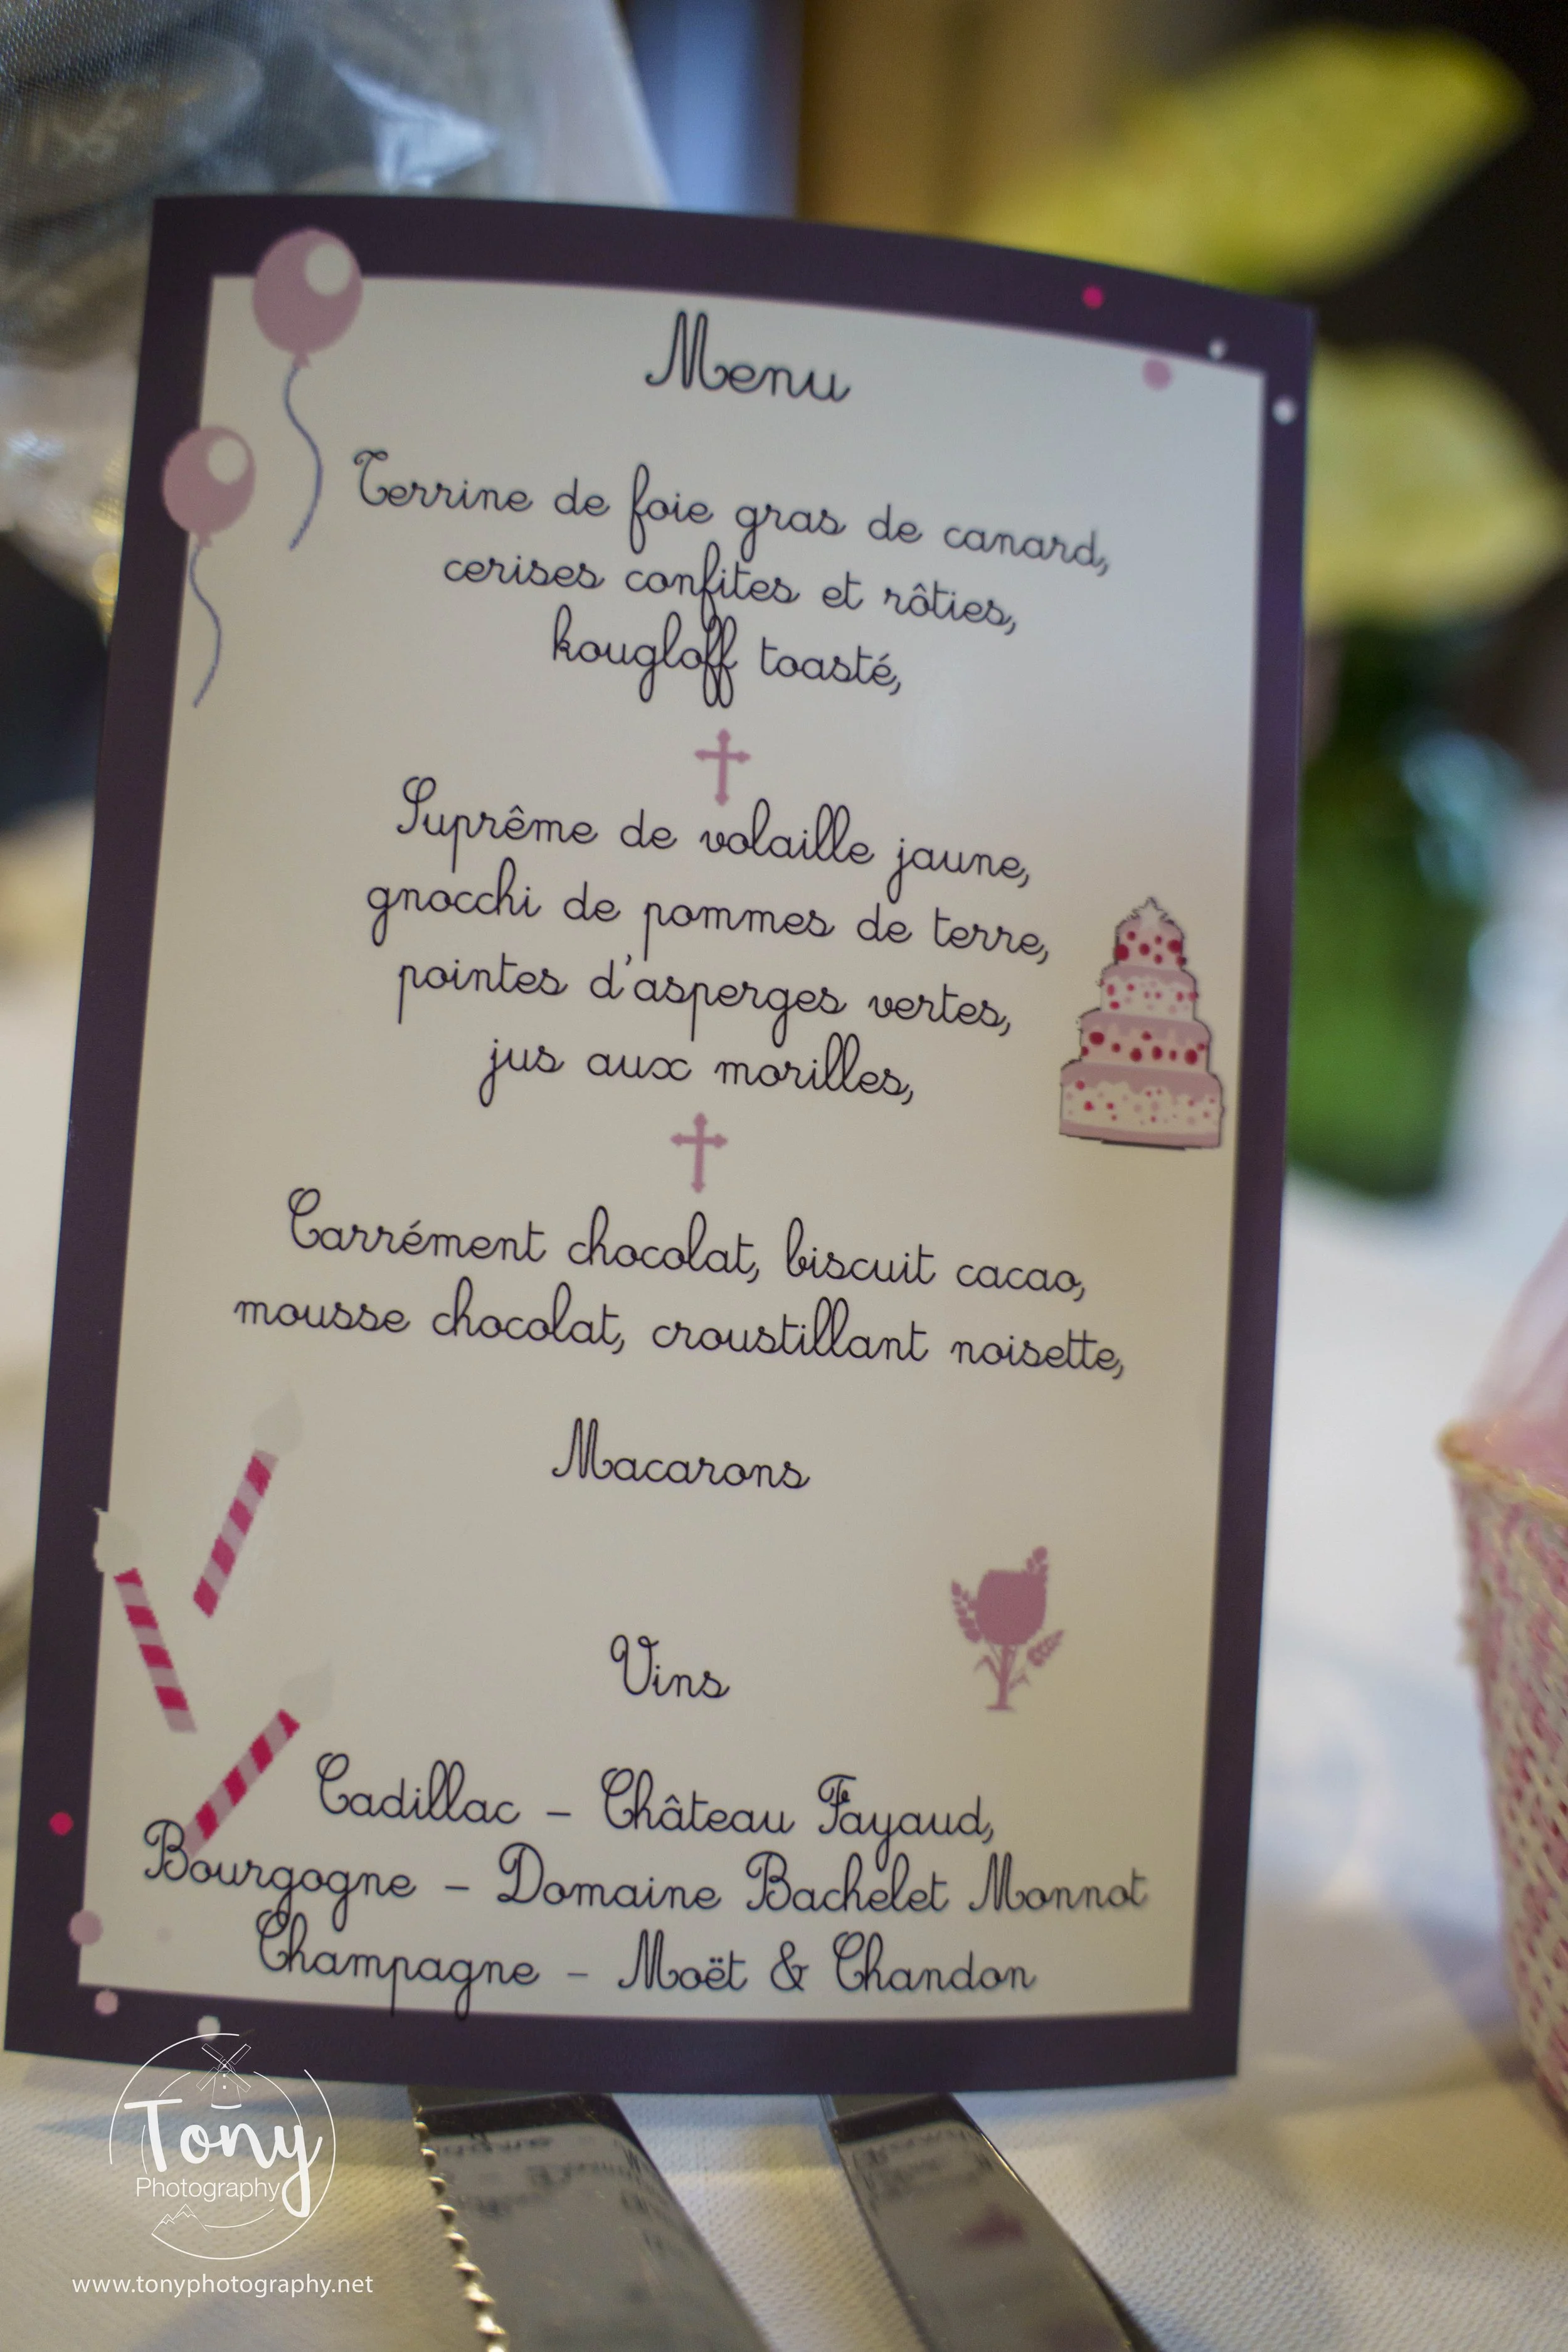 Menu
Terrine de foie gras de canard,
cerises confites et rôties,
kougloff toasté,
Suprême de volaille jaune,
gnocchi de pommes de terre,
pointes d'asperges vertes,
jus aux morilles,
Carrément chocolat, biscuit cacao,
mousse chocolat, croustillant noisette,
Macarons
Vins
Cadillac – Château Fayaud,
Bourgogne – Domaine Bachelet Monnot
Champagne – Moët & Chandon
Tony
Photography
www.tonyphotography.net